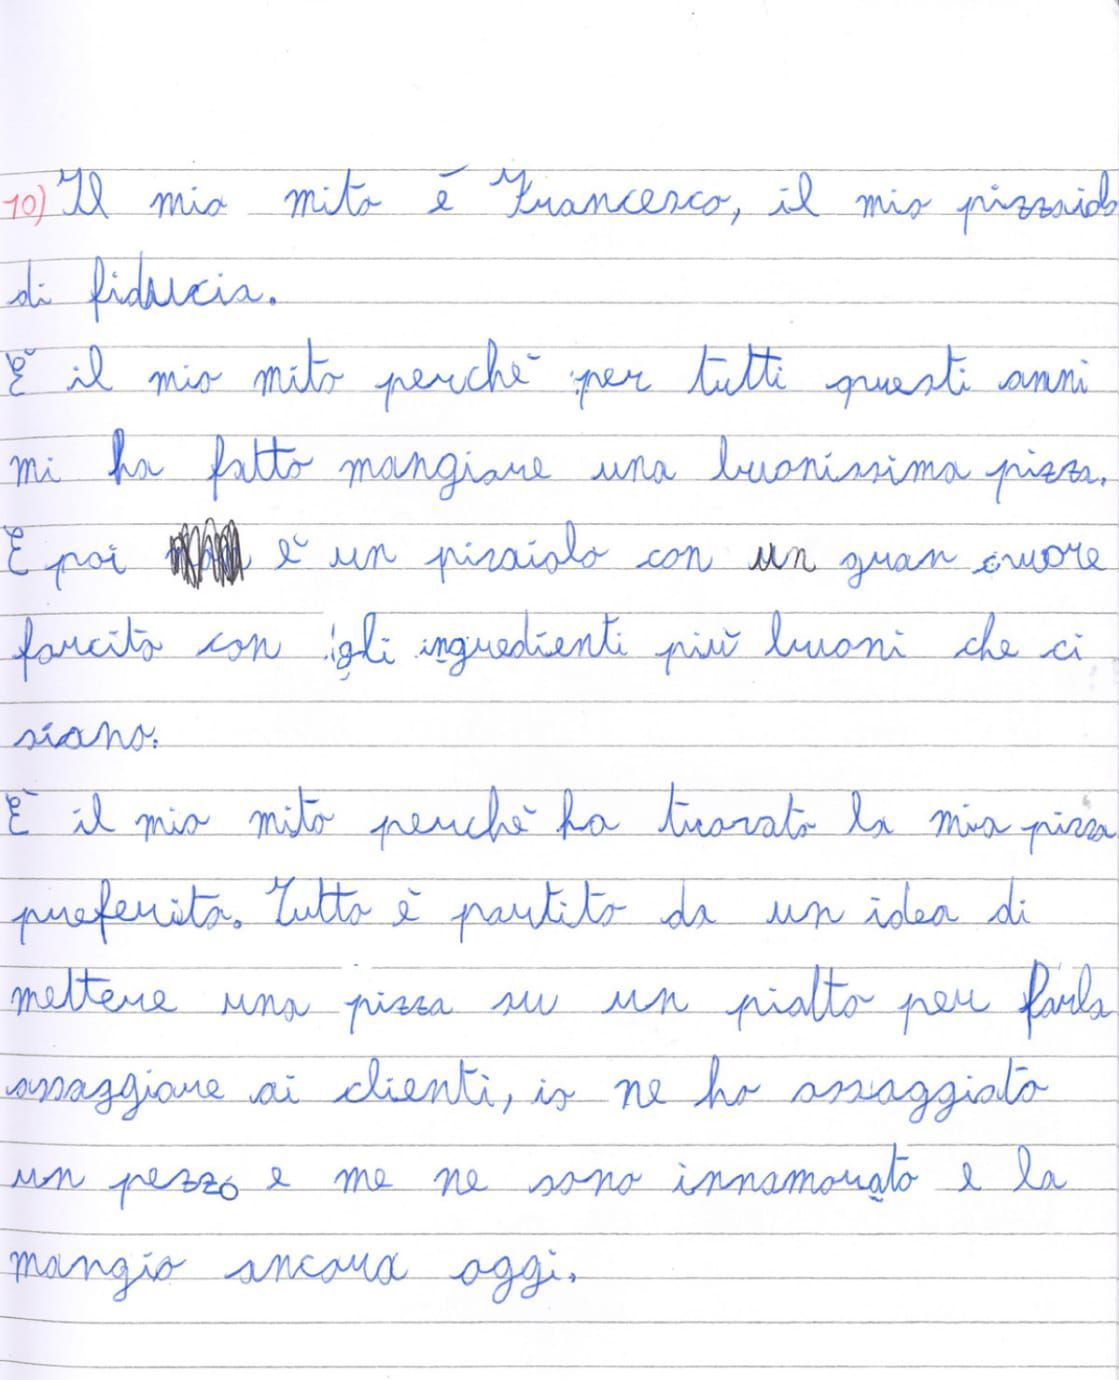 10) Il mio mito è Francesco, il mio pizzaiolo
di fiducia.
È il mio mito perchè per tutti questi anni
mi ha fatto mangiare una buonissima pizza.
E poi è un pizaiolo con un gran cuore
farcito con gli ingredienti più buoni che ci
siano.
È il mio mito perchè ha trovato la mia pizza
preferita. Tutto è partito da un idea di
mettere una pizza su un piatto per farla
assaggiare ai clienti, io ne ho assaggiato
un pezzo e me ne sono innamorato e la
mangio ancora oggi.